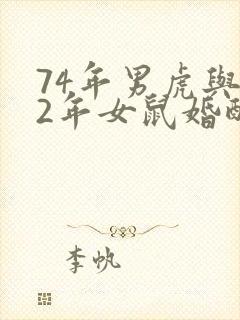 74年男虎與
2年女鼠婚配
李帆